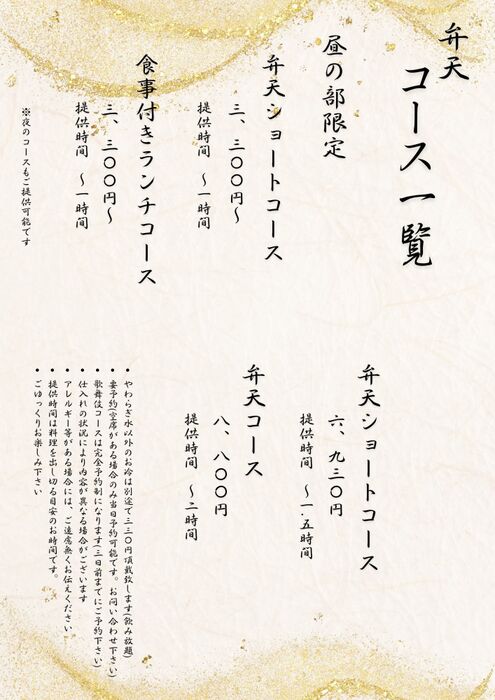 弁天
コース一覧
昼の部限定
弁天ショートコース
三、三〇〇円〜
提供時間 〜一時間
食事付きランチコース
三、三〇〇円〜
提供時間 〜一時間
※夜のコースもご提供可能です
弁天ショートコース
六、九三〇円
提供時間 〜一.五時間
弁天コース
八、八〇〇円
提供時間 〜二時間
• やわらぎ水以外のお冷は別途で三三〇円頂戴致します(飲み放題)
• 要予約(空席がある場合のみ当日予約可能です。お問い合わせ下さい)
• 歌舞伎コースは完全予約制になります(三日前までにご予約下さい)
• 仕入れの状況により内容が異なる場合がございます
• アレルギー等がある場合には、ご遠慮無くお伝えください
• 提供時間は料理を出し切る目安のお時間です。
• ごゆっくりお楽しみ下さい